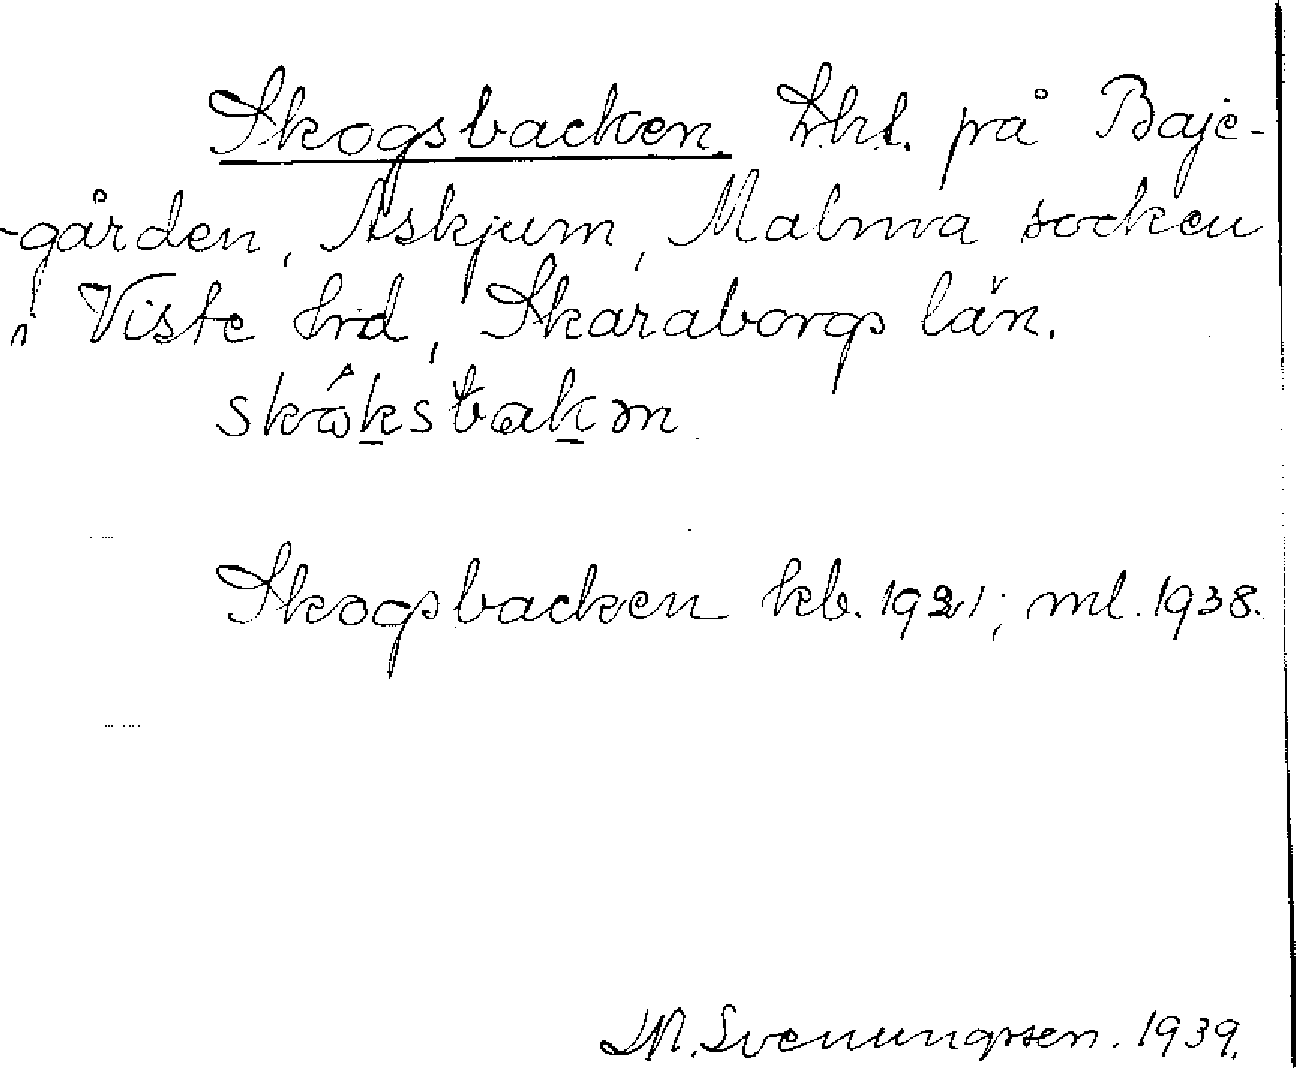 Skogsbacken. Lht. på Baje-
-gården, Askjum, Malma socken
i Viste hrd, Skaraborgs län.
skóksbakən
Skogsbacken kb. 1921; ml. 1938.
M. Svenungsson. 1939.